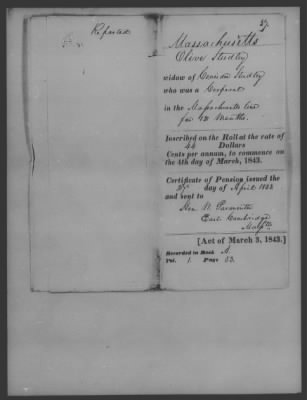 27
Massachusetts
Olive Studley
widow of Studley
who was a Corporal
in the Massachusetts line
for Months.
Inscribed on the Roll at the rate of
44 Dollars
Cents per annum, to commence on
the 4th day of March, 1843.
Certificate of Pension issued the
day of April
and sent to
Hon. W. Parmenter
East Cambridge
Massts
[Act of March 3, 1843.]
Recorded in Book A.
Vol. 1. Page 53.